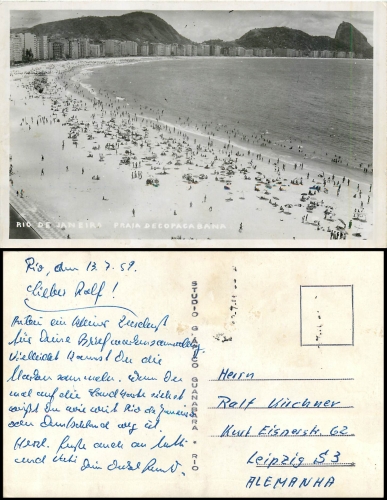 RIO DE JANEIRO - PRAIA DE COPACABANA
Rio, den 13.7.59.
Lieber Ralf!
ein kleiner
für Deine Briefmarkensammlung
Vielleicht kannst Du die
Marken sammeln. Wenn Du
mal auf die Landkarte siehst
wie weit Rio de Janeiro
von Deutschland weg ist.
Herzl. Grüße auch an
und Dein Onkel
STUDIO G. GUANABARA - RIO
Herrn
Ralf Kirchner
Kurt Eisnerstr. 62
Leipzig S 3
ALEMANHA